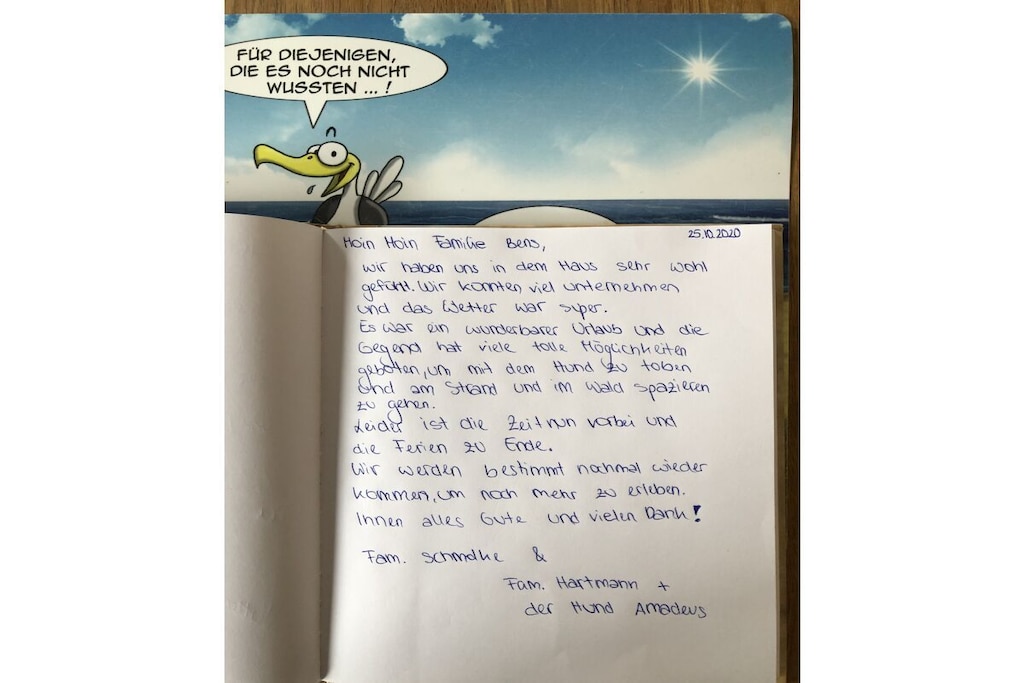 FÜR DIEJENIGEN,
DIE ES NOCH NICHT
WUSSTEN ... !
25.10.2020
Moin Moin Familie Bens,
wir haben uns in dem Haus sehr wohl
gefühlt. Wir konnten viel unternehmen
und das Wetter war super.
Es war ein wunderbarer Urlaub und die
Gegend hat viele tolle Möglichkeiten
geboten, um mit dem Hund zu toben
und am Strand und im Wald spazieren
zu gehen.
Leider ist die Zeit nun vorbei und
die Ferien zu Ende.
Wir werden bestimmt nochmal wieder
kommen, um noch mehr zu erleben.
Ihnen alles Gute und vielen Dank!
Fam. &
Fam. Hartmann +
der Hund Amadeus